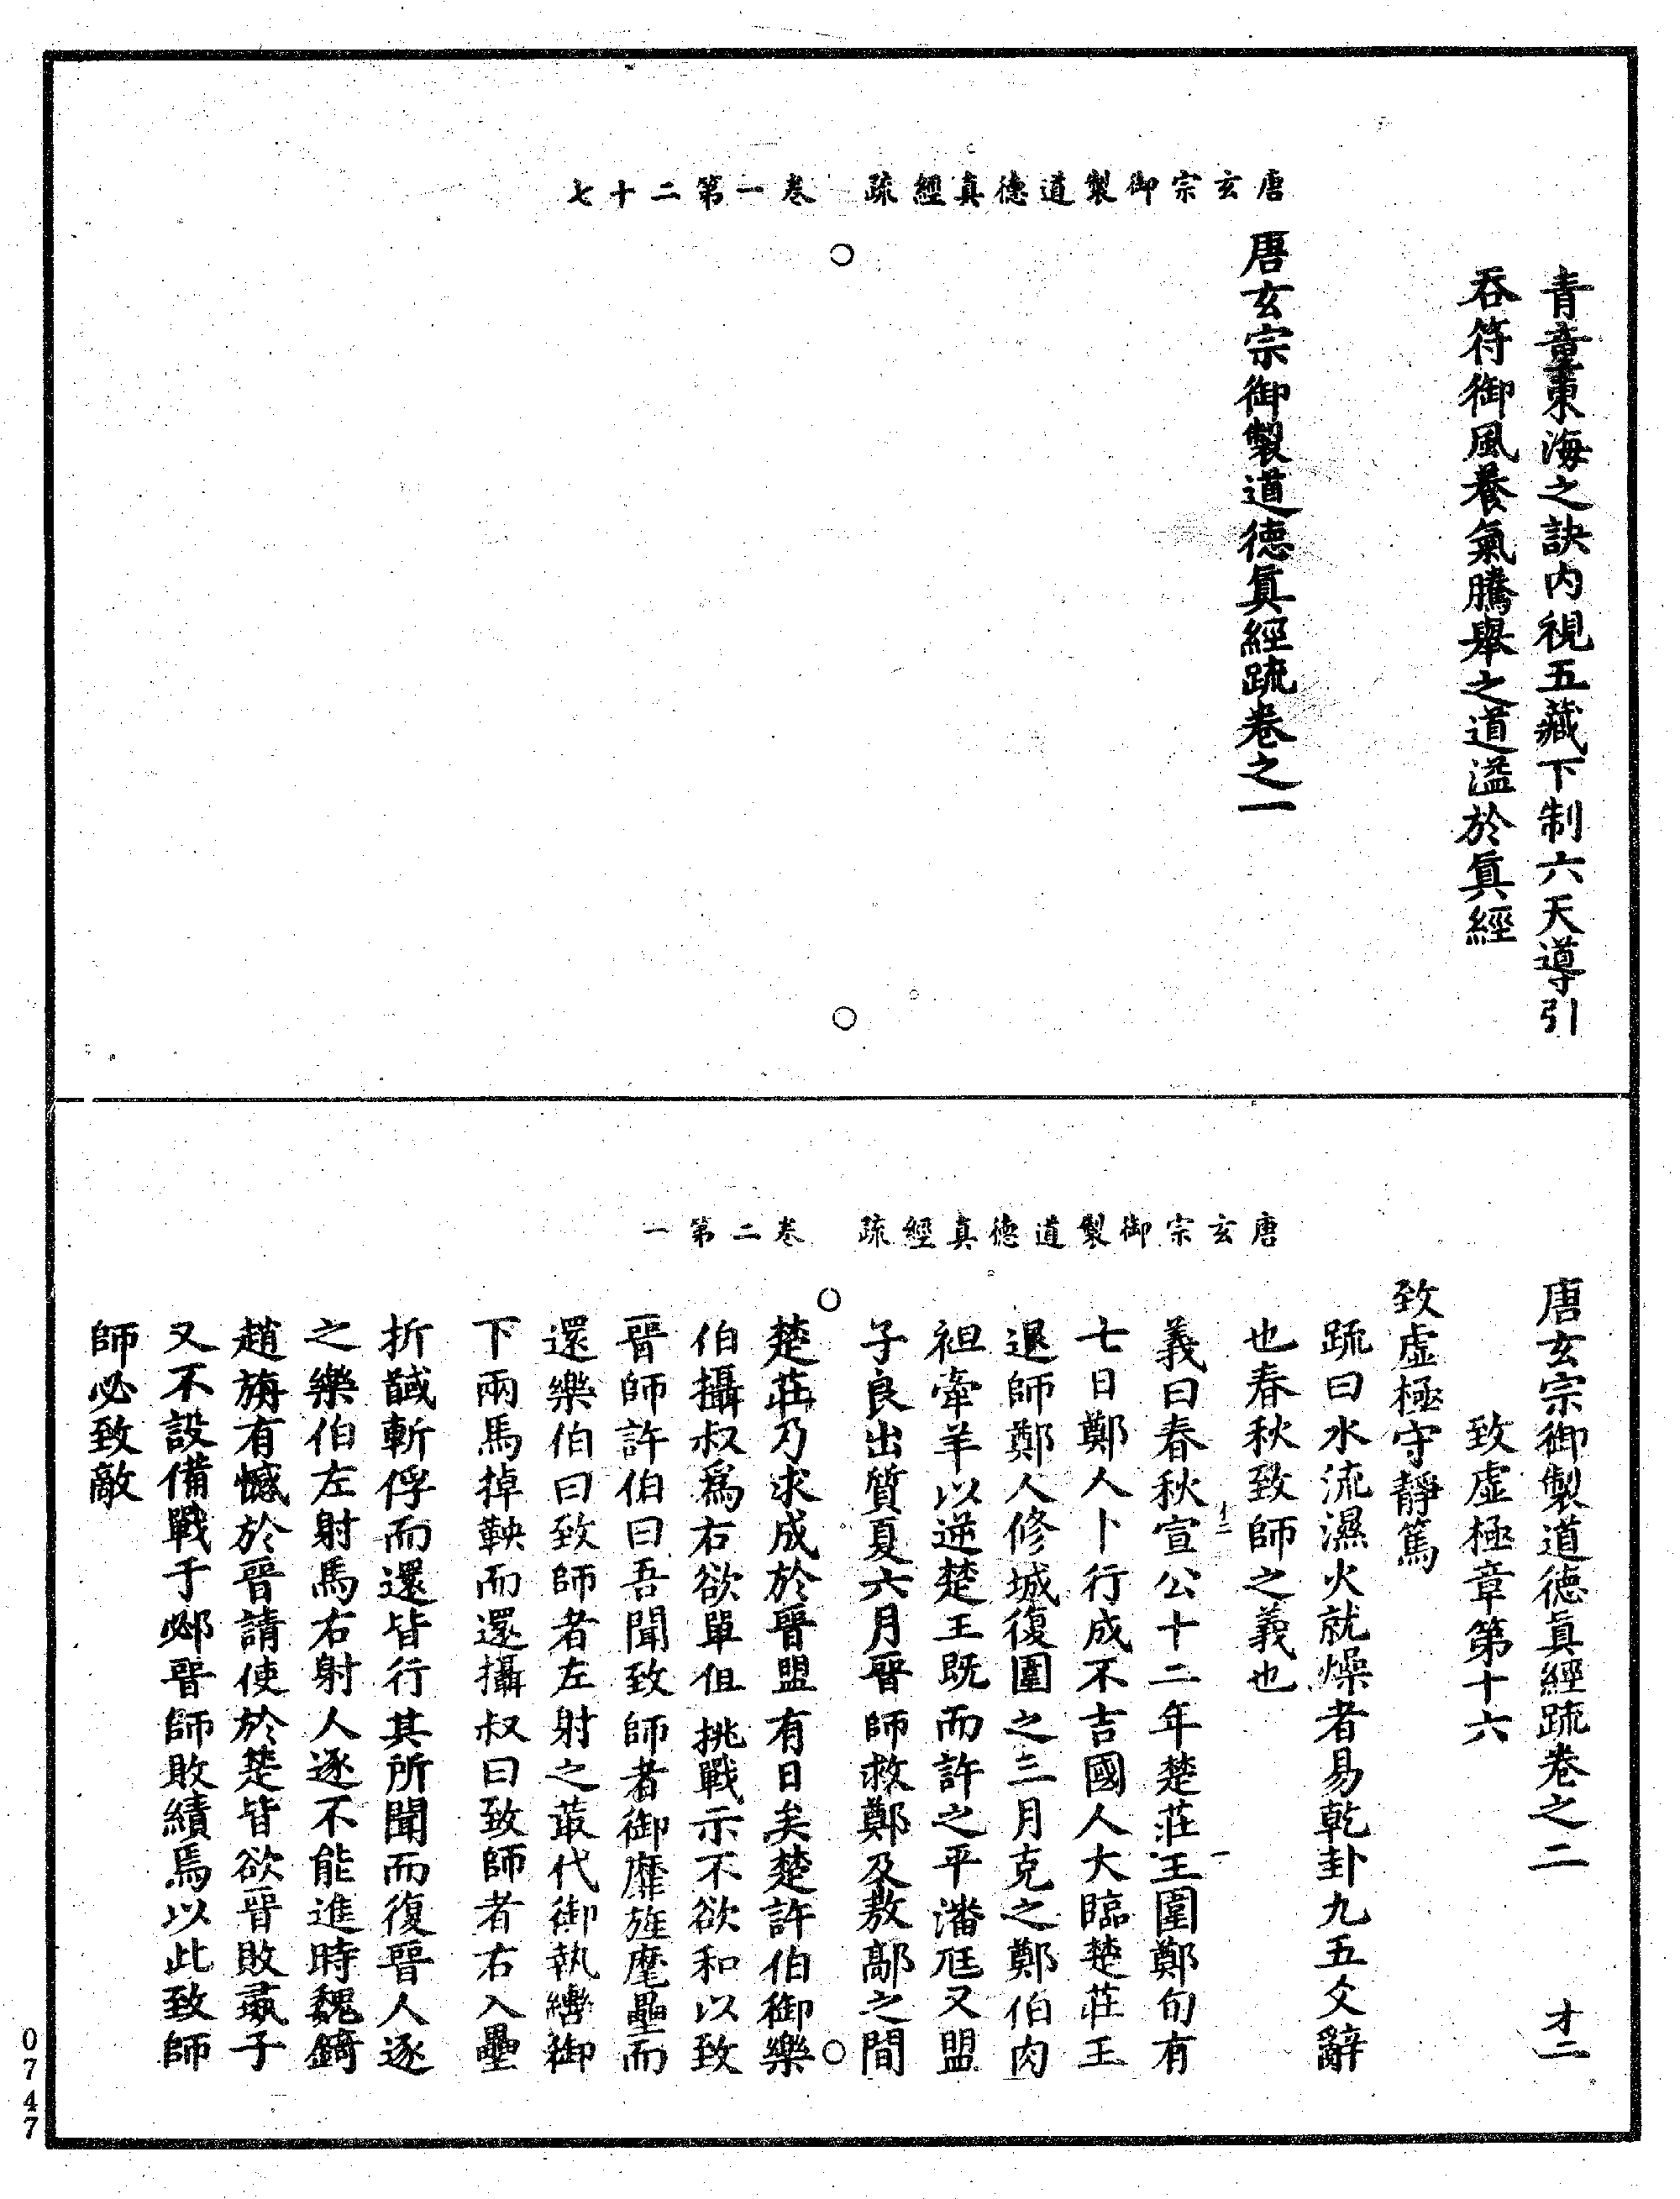 唐玄宗御製道德真經疏　卷一第二十七
青童東海之訣內視五藏下制六天導引
吞符御風養氣騰舉之道溢於眞經
唐玄宗御製道德眞經疏卷之一
唐玄宗御製道德真經疏　卷二第一
唐玄宗御製道德眞經疏卷之二　才二
致虛極章第十六
致虛極守靜篤
疏曰水流濕火就燥者易乾卦九五爻辭
也春秋致師之義也
十二　一
義曰春秋宣公十二年楚莊王圍鄭旬有
七日鄭人卜行成不吉國人大臨楚莊王
退師鄭人修城復圍之三月克之鄭伯肉
袒牽羊以逆楚王既而許之平潘尫又盟
子良出質夏六月晉師救鄭及敖鄗之間
楚莊乃求成於晉盟有日矣楚許伯御樂
伯攝叔爲右欲單伹挑戰示不欲和以致
晉師許伯曰吾聞致師者御靡旌麾壘而
還樂伯曰致師者左射之菆代御執轡御
下兩馬掉鞅而還攝叔曰致師者右入壘
折馘斬俘而還皆行其所聞而復晉人逐
之樂伯左射馬右射人逐不能進時魏錡
趙旃有憾於晉請使於楚皆欲晉敗彘子
又不設備戰于邲晉師敗績焉以此致師
師必致敵
0747